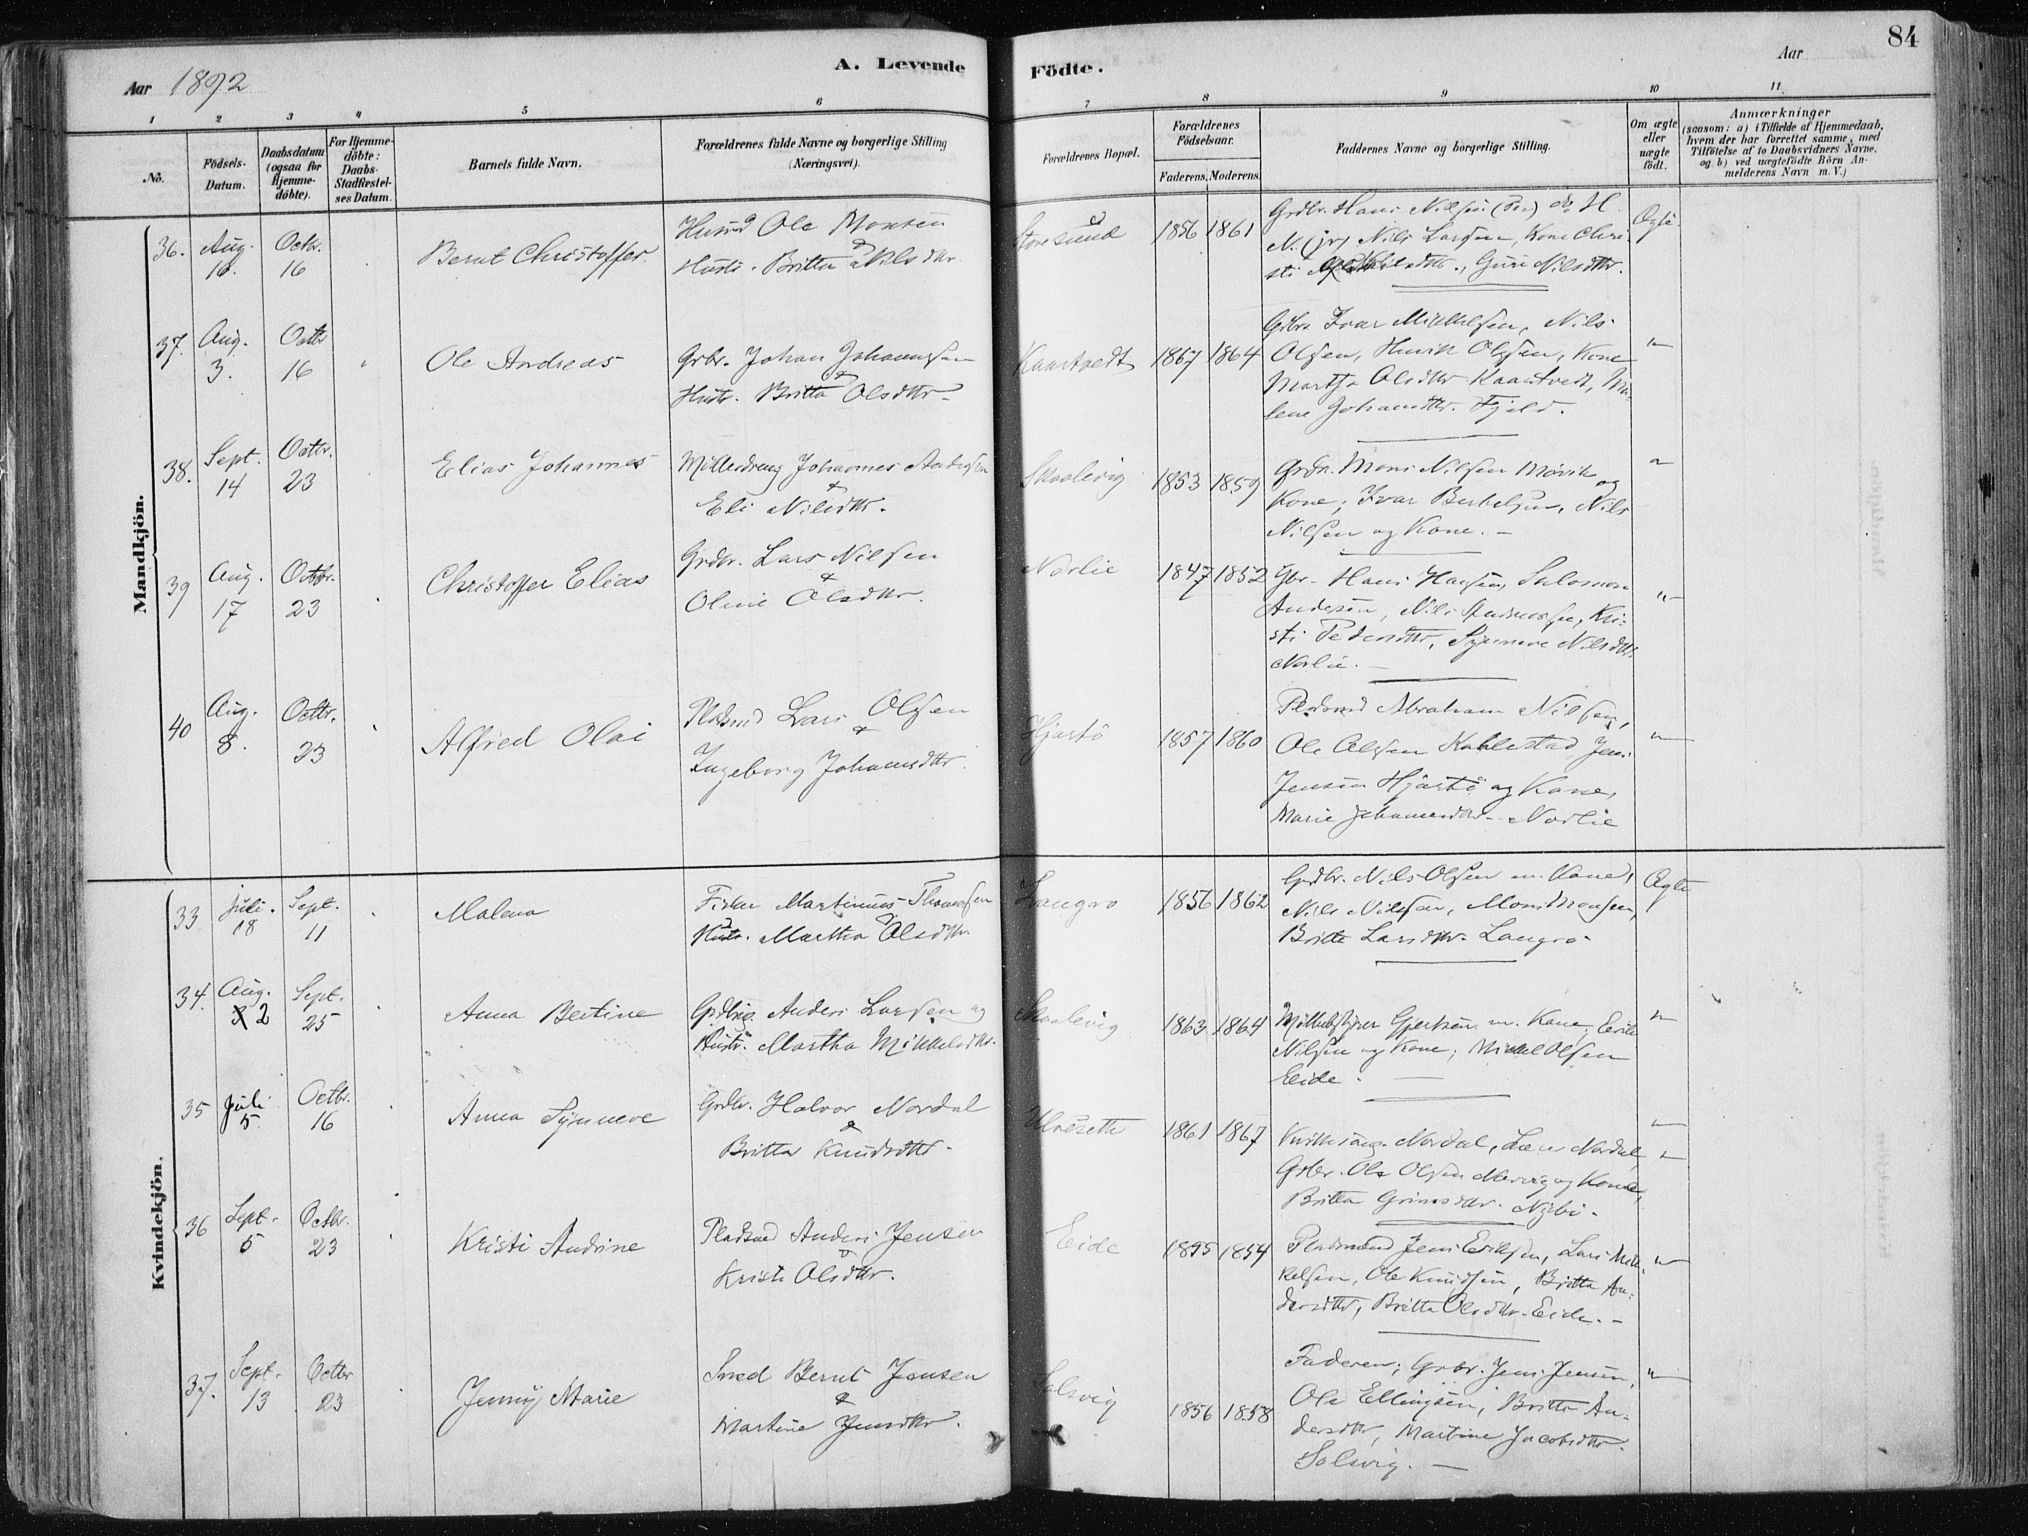 84
Aar 1892
A. Levende
Födte.
Aar
1 2 3 4 5 6 7 8 9 10 11
No.
Födsels-Datum.
Daabsdatum (ogsaa for Hjemme-döbte).
For Hjemme-döbte: Daabs-Stadfæstel-ses Datum.
Barnets fulde Navn.
Forældrenes fulde Navne og borgerlige Stilling (Næringsvei).
Forældrenes Bopæl.
Forældrenes Födselsaar.
Faderens. Moderens.
Faddernes Navne og borgerlige Stilling.
Om ægte eller uægte födt.
Anmærkninger
(saasom: a) i Tilfælde af Hjemmedaab,
hvem der har forrettet samme, med
Tilföielse af to Daabsvidners Navne.
og b) ved uægtefödte Börn An-
melderens Navn m. V.)
Mandkjön.
36. Aug. 16. Octr. 16
Bernt Christoffer.
Husmd Ole Monsen
& Hustr. Britta Nilsdtr.
Storesund
1856 1861
Grdbr. Hans Nilsen
Nils Larsen, Kone Chri-
sti, Guri Nilsdtr.
Ægte
37. Aug. 3. Octbr 16
Ole Andreas
Grbr. Johan Johannesen
& Hustr. Britta Olsdtr.
Kaartvedt
1867 1864
Grdbr. Ivar Mikkelsen, Nils
Olsen, Henrik Olsen, Kone
Martha Olsdtr Kaartvedt, Ma-
lene Johansdtr. Fjeld.
"
38. Sept. 14 Octbr. 23
Elias Johannes
Møllerdreng Johannes Andersen
&
Eli Nilsdtr.
Skaalevig
1853 1859
Grdbr. Mons Nilsen Møvik og
Kone; Ivar Berthelsen, Nils
Nilsen og Kone.
"
39 Aug. 17 Octbr. 23
Christoffer Elias
Grdbr. Lars Nilsen
&
Oline Olsdtr.
Norlie
1847 1852
Gbr. Hans Hansen, Salomon
Andersen, Nils Andreassen, Kri-
sti Pedersdtr, Synneve Nilsdtr
Norlie.
"
40 Aug. 8. Octbr. 23
Alfred Olai
Pladsmd Lars Olsen
&
Ingeborg Johannsdtr.
Hjartö
1857 1860
Pladsmd Abraham Nilsen,
Ole Olsen Kahlestad, Jens
Jensen Hjartö og Kone,
Marie Johannesdtr. Norlie
"
Kvindekjön.
33 Juli. 18 Sept. 11
Malena
Fisker Martinus Thomassen
& Hustr. Martha Olsdtr.
Langrø
1856 1862
Grdbr. Nils Olsen m. Kone,
Nils Nilssen, Mons Monsen,
Britta Larsdtr. Langrø
Ægte
34. Aug. 2 Sept. 25
Anna Bertine
Grdbr. Anders Larsen og
Hustr. Martha Mikkelsdtr.
Skaalevig
1863 1864
Møllebestyrer Gjertsen m. Kone, Erik
Nilsen og Kone; Mikkel Olsen
Eide.
"
35 Juli 5 Octbr. 16
Anna Synneve
Grdbr. Halvor Nordal
&
Britta Knudsdtr.
Ulveseth
1861 1867
Nordal, Lars Nordal,
Grbr. Ole Olsen og Kone,
Britta Grimsdtr. Nybö.
"
36 Sept. 5 Octbr. 23
Kristi Andrine
Pladsmd Anders Jensen
&
Kristi Olsdtr.
Eide
1855 1854
Pladsmænd Jens Eriksen, Lars Mik-
kelsen, Ole Knudsen, Britta An-
dersdtr, Britta Olsdtr. Eide.
"
37. Sept. 13 Octbr 23
Jenny Marie
Smed Bernt Jensen
&
Martine Jensdtr.
Solsvig
1856 1858
Faderen; Grbr. Jens Jensen,
Ole Ellingsen, Britta An-
dersdtr, Martine Jacobsdtr.
Solsvig.
"